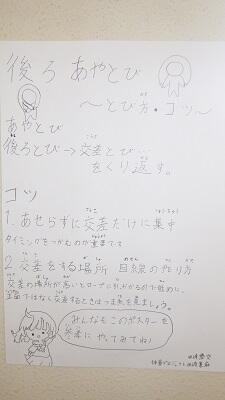 後ろ あやとび
〜とび方・コツ〜
あやとび
後ろとび→交差とび…
をくり返す。
コツ
1. あせらずに交差だけに集中
タイミングをつかむのが重要です
2. 交差をする場所 目線のやり方
交差の場所が高いとロープに引っかかるので低めに、
ではなく交差するときはっ正面を見ましょう。
みんなもこのポスターを
参考に やってみてね!